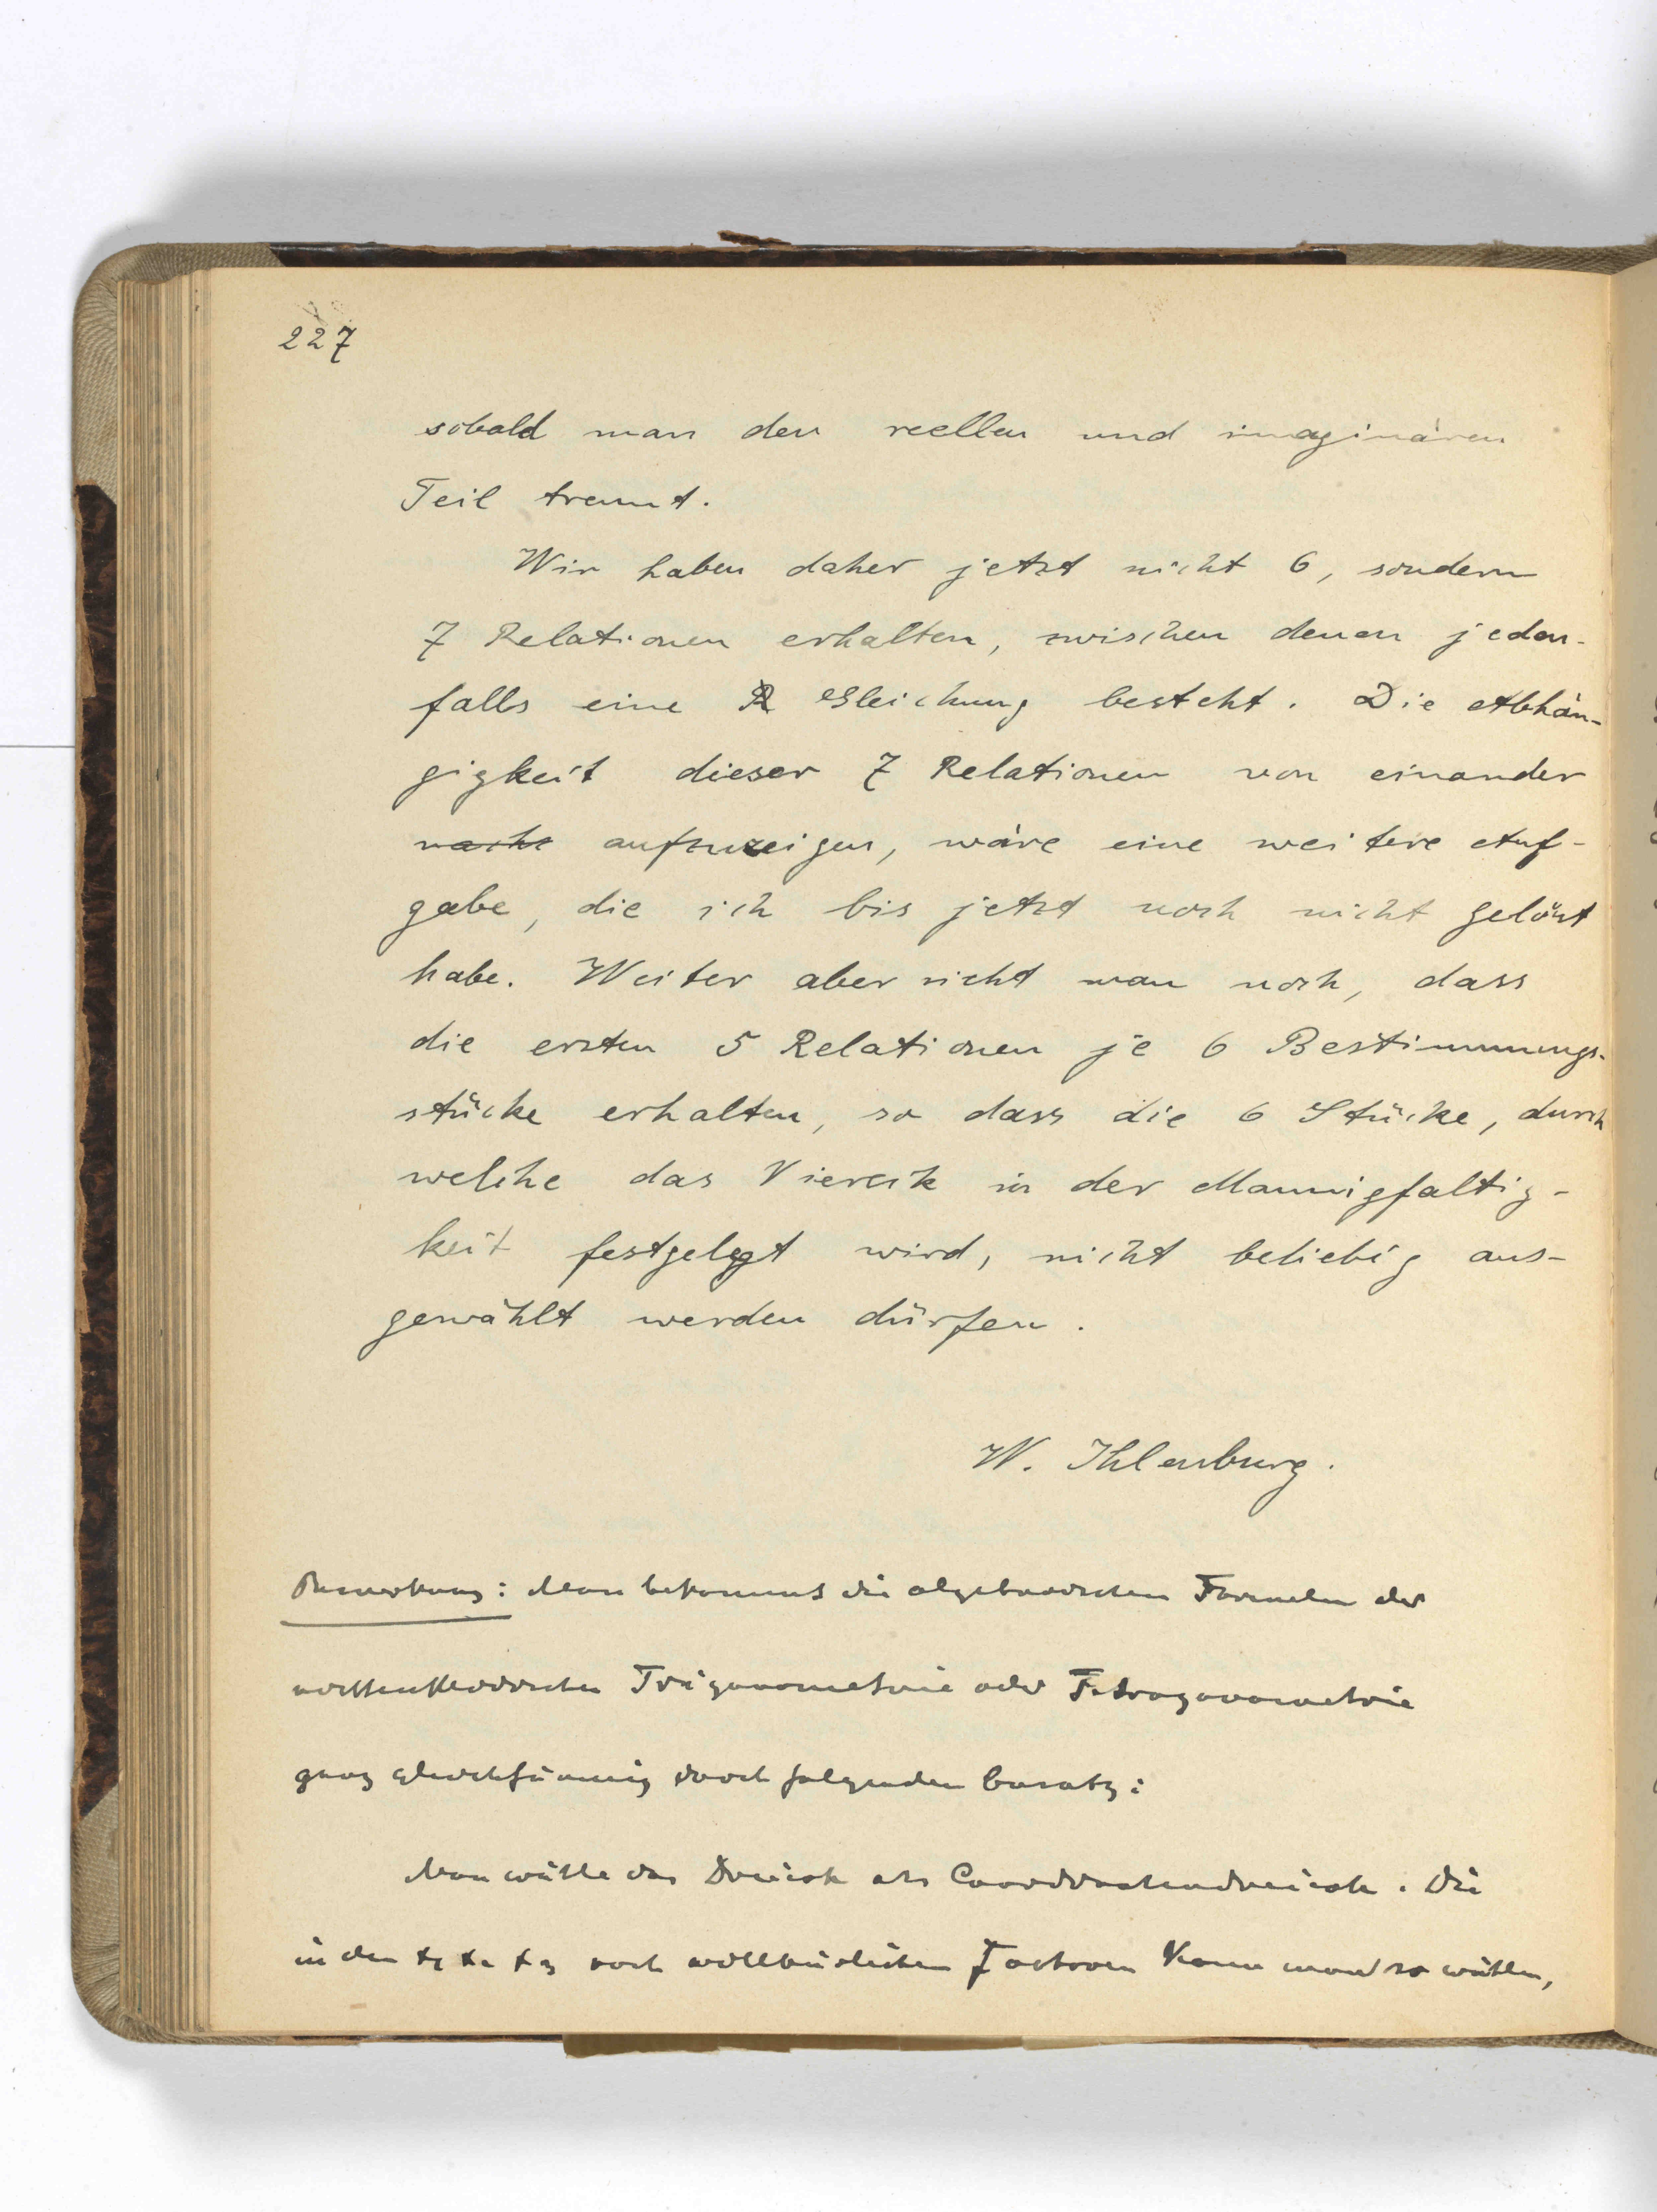 227
sobald man den reellen und imaginären
Teil trennt.
Wir haben daher jetzt nicht 6, sondern
7 Relationen erhalten, zwischen denen jeden-
falls eine R Gleichung besteht. Die Abhän-
gigkeit dieser 7 Relationen von einander
aufzuzeigen, wäre eine weitere Auf-
gabe, die ich bis jetzt noch nicht gelöst
habe. Weiter aber sieht man noch, dass
die ersten 5 Relationen je 6 Bestimmungs-
stücke erhalten, so dass die 6 Stücke, durch
welche das Viereck in der Mannigfaltig-
keit festgelegt wird, nicht beliebig aus-
gewählt werden dürfen.
W. Ihlenburg.
Bemerkung: Man bekommt die algebraischen Formeln der
nichteuklidischen Trigonometrie oder Tetragonometrie
ganz gleichförmig durch folgenden Ansatz:
Man wähle das Dreieck als Coordinatendreieck. Die
in den x₁ x₂ x₃ noch willkürlichen Factoren kann man so wählen,